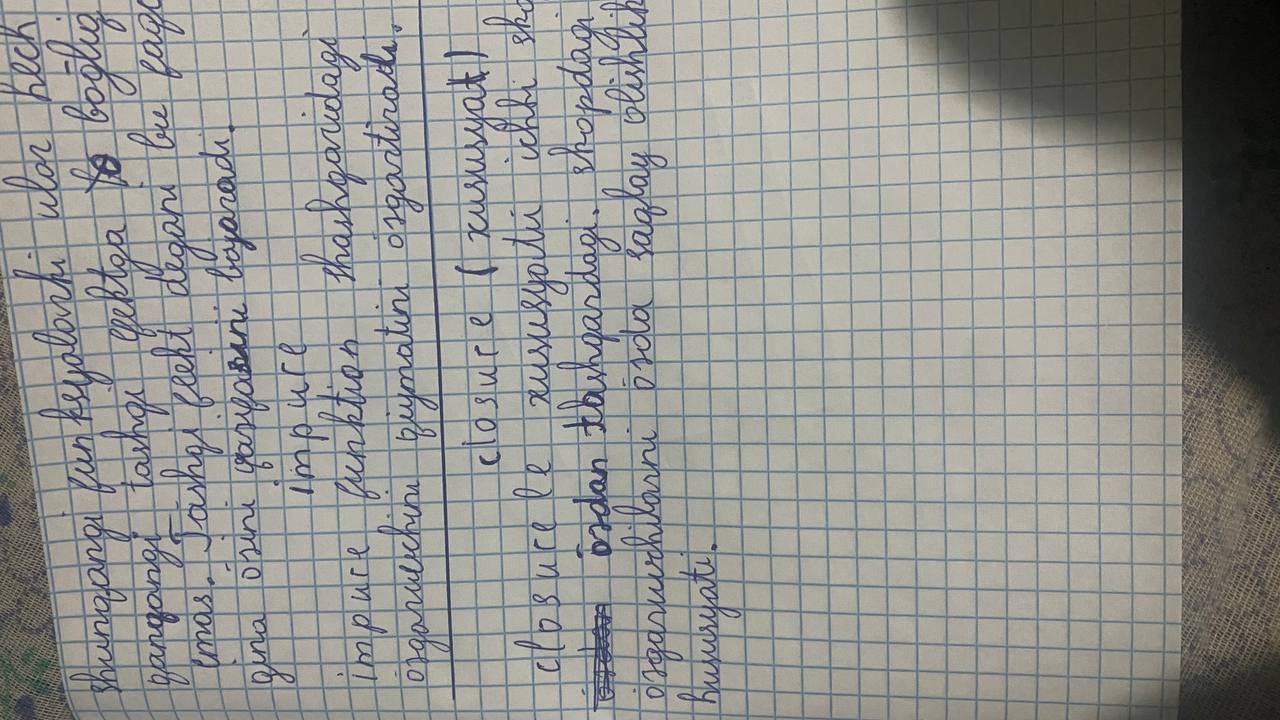 shunqangi funksyalarki ular hech
qanqangi tashqi efektga bōgliq
emas. Tashqi efekt degani bu faqa
gina ōzini ōzgasini bajaradi.
impure
impure funktion thashqaridagi
ōzgaruvchini qiymatini ōzgartiradi.
closure (xususyat)
closure le xususyatii ichki sko
ōzdan tashqardagi. skopdagi
ōzgaruvchilarni ōzda saqlay olishlik
hususyati.